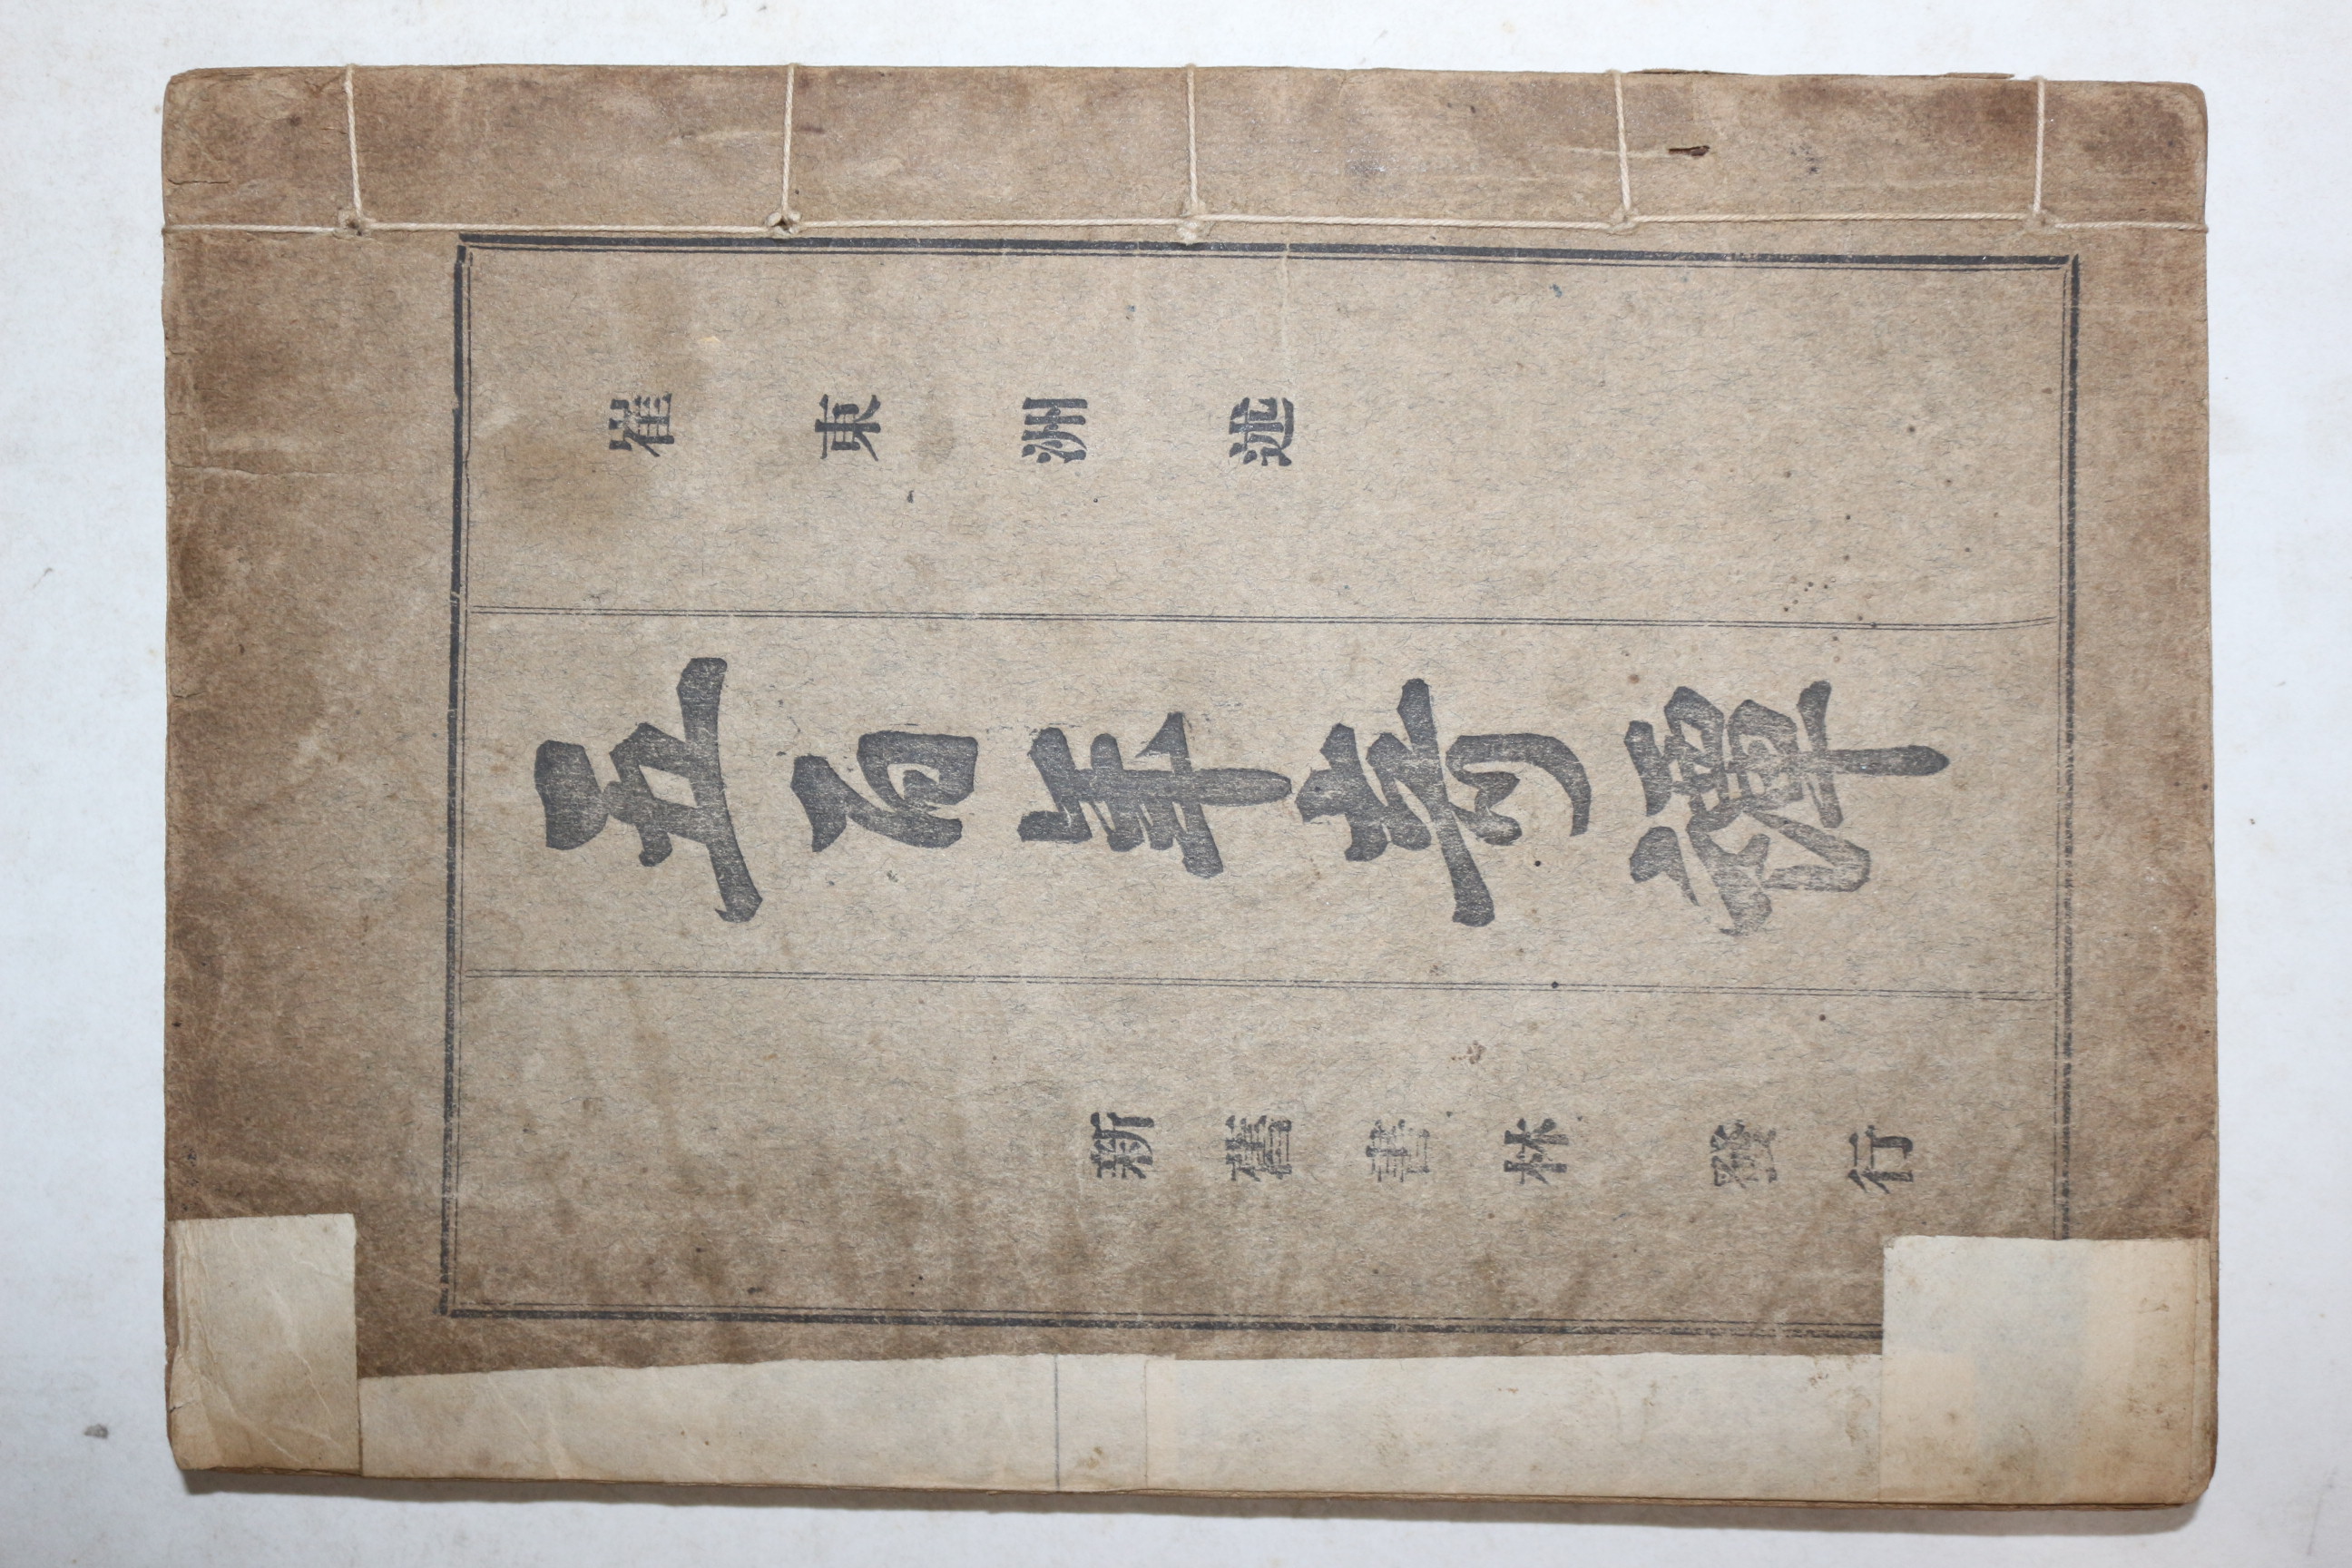 崔東洲述
五百年奇譚
新舊書林發行